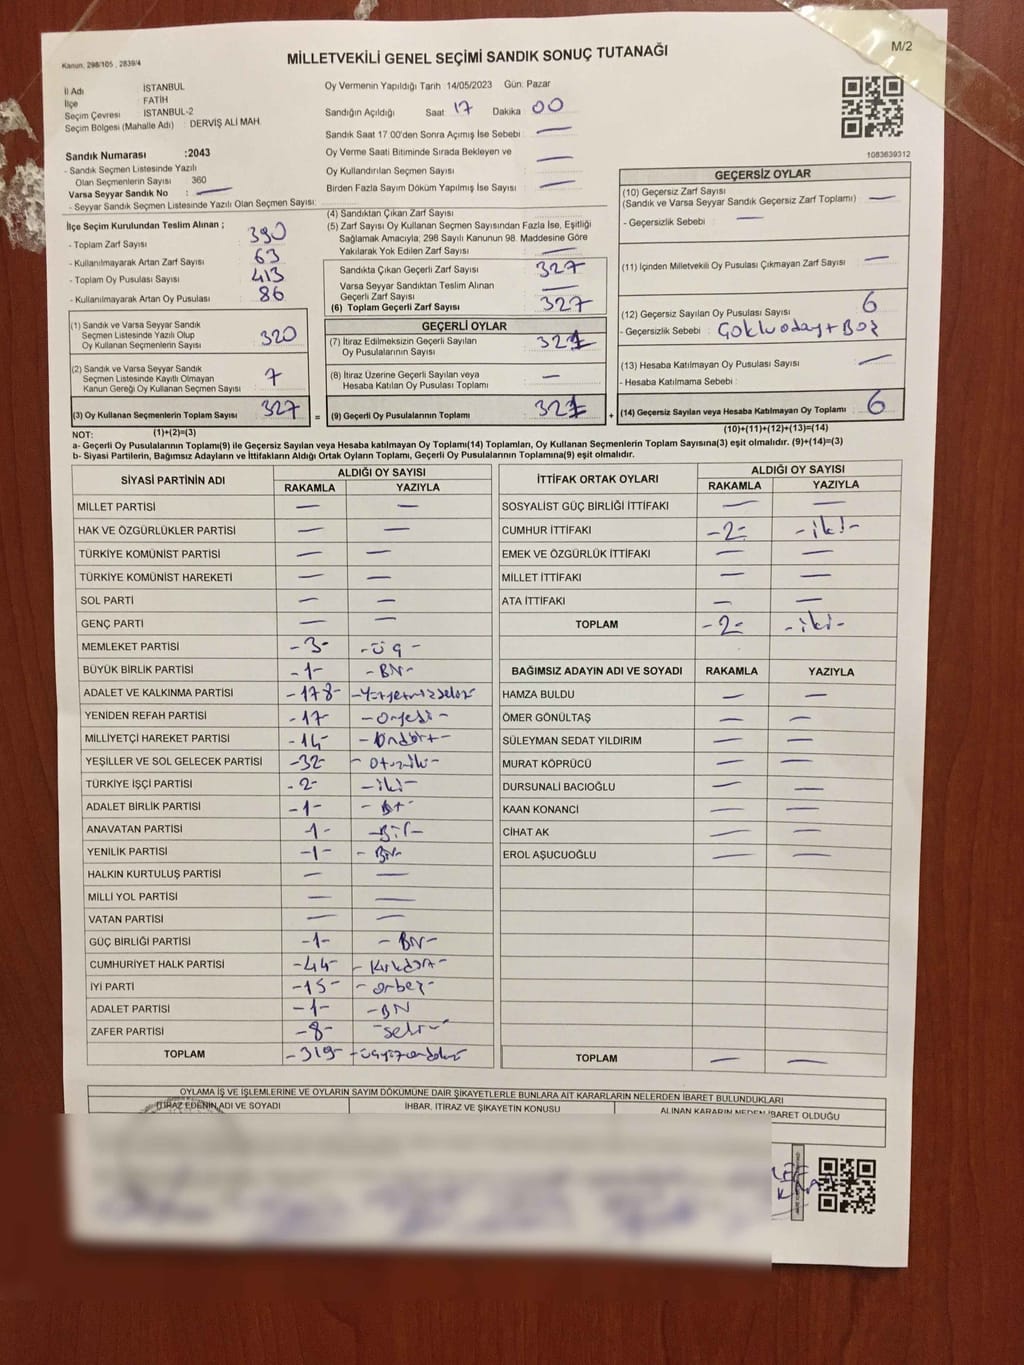 M/2
Kanun, 298/105 , 2839/4
MİLLETVEKİLİ GENEL SEÇİMİ SANDIK SONUÇ TUTANAĞI
İl Adı İSTANBUL
İlçe FATİH
Seçim Çevresi İSTANBUL-2
Seçim Bölgesi (Mahalle Adı) DERVİŞ ALİ MAH.
Sandık Numarası :2043
- Sandık Seçmen Listesinde Yazılı
Olan Seçmenlerin Sayısı 360
Varsa Seyyar Sandık No : —
- Seyyar Sandık Seçmen Listesinde Yazılı Olan Seçmen Sayısı:
Oy Vermenin Yapıldığı Tarih :14/05/2023 Gün: Pazar
Sandığın Açıldığı Saat 17 Dakika 00
Sandık Saat 17:00'den Sonra Açımış İse Sebebi —
Oy Verme Saati Bitiminde Sırada Bekleyen ve
Oy Kullandırılan Seçmen Sayısı —
Birden Fazla Sayım Döküm Yapılmış İse Sayısı —
1083639312
İlçe Seçim Kurulundan Teslim Alınan ;
- Toplam Zarf Sayısı 390
- Kullanılmayarak Artan Zarf Sayısı 63
- Toplam Oy Pusulası Sayısı 413
- Kullanılmayarak Artan Oy Pusulası 86
(1) Sandık ve Varsa Seyyar Sandık
Seçmen Listesinde Yazılı Olup
Oy Kullanan Seçmenlerin Sayısı 320
(2) Sandık ve Varsa Seyyar Sandık
Seçmen Listesinde Kayıtlı Olmayan
Kanun Gereği Oy Kullanan Seçmen Sayısı 7
(3) Oy Kullanan Seçmenlerin Toplam Sayısı 327 =
(1)+(2)=(3)
(4) Sandıktan Çıkan Zarf Sayısı
(5) Zarf Sayısı Oy Kullanan Seçmen Sayısından Fazla İse, Eşitliği
Sağlamak Amacıyla; 298 Sayılı Kanunun 98. Maddesine Göre
Yakılarak Yok Edilen Zarf Sayısı —
Sandıkta Çıkan Geçerli Zarf Sayısı 327
Varsa Seyyar Sandıktan Teslim Alınan
Geçerli Zarf Sayısı —
(6) Toplam Geçerli Zarf Sayısı 327
GEÇERLİ OYLAR
(7) İtiraz Edilmeksizin Geçerli Sayılan
Oy Pusulalarının Sayısı 321
(8) İtiraz Üzerine Geçerli Sayılan veya
Hesaba Katılan Oy Pusulası Toplamı —
(9) Geçerli Oy Pusulalarının Toplamı 321 +
GEÇERSİZ OYLAR
(10) Geçersiz Zarf Sayısı
(Sandık ve Varsa Seyyar Sandık Geçersiz Zarf Toplamı) —
- Geçersizlik Sebebi : —
(11) İçinden Milletvekili Oy Pusulası Çıkmayan Zarf Sayısı —
(12) Geçersiz Sayılan Oy Pusulası Sayısı 6
- Geçersizlik Sebebi :
(13) Hesaba Katılmayan Oy Pusulası Sayısı —
- Hesaba Katılmama Sebebi :
(14) Geçersiz Sayılan veya Hesaba Katılmayan Oy Toplamı 6
(10)+(11)+(12)+(13)=(14)
NOT:
a- Geçerli Oy Pusulalarının Toplamı(9) ile Geçersiz Sayılan veya Hesaba katılmayan Oy Toplamı(14) Toplamları, Oy Kullanan Seçmenlerin Toplam Sayısına(3) eşit olmalıdır. (9)+(14)=(3)
b- Siyasi Partilerin, Bağımsız Adayların ve İttifakların Aldığı Ortak Oyların Toplamı, Geçerli Oy Pusulalarının Toplamına(9) eşit olmalıdır.
SİYASİ PARTİNİN ADI ALDIĞI OY SAYISI
RAKAMLA YAZIYLA
MİLLET PARTİSİ — —
HAK VE ÖZGÜRLÜKLER PARTİSİ — —
TÜRKİYE KOMÜNİST PARTİSİ — —
TÜRKİYE KOMÜNİST HAREKETİ — —
SOL PARTİ — —
GENÇ PARTİ — —
MEMLEKET PARTİSİ -3- -üç-
BÜYÜK BİRLİK PARTİSİ -1- -Bir-
ADALET VE KALKINMA PARTİSİ -178- -Yüzyetmişsekiz
YENİDEN REFAH PARTİSİ -17- -Onyedi-
MİLLİYETÇİ HAREKET PARTİSİ -14- -Ondört-
YEŞİLLER VE SOL GELECEK PARTİSİ -32- -Otuziki-
TÜRKİYE İŞÇİ PARTİSİ -2- -iki-
ADALET BİRLİK PARTİSİ -1- -Bir-
ANAVATAN PARTİSİ -1- -Bir-
YENİLİK PARTİSİ -1- -Bir-
HALKIN KURTULUŞ PARTİSİ — —
MİLLİ YOL PARTİSİ — —
VATAN PARTİSİ — —
GÜÇ BİRLİĞİ PARTİSİ -1- -Bir-
CUMHURİYET HALK PARTİSİ -44- -Kırkdört-
İYİ PARTİ -15- -onbeş-
ADALET PARTİSİ -1- -Bir
ZAFER PARTİSİ -8- -sekiz-
TOPLAM -319- -üçyüzondokuz
İTTİFAK ORTAK OYLARI ALDIĞI OY SAYISI
RAKAMLA YAZIYLA
SOSYALİST GÜÇ BİRLİĞİ İTTİFAKI — —
CUMHUR İTTİFAKI -2- -iki-
EMEK VE ÖZGÜRLÜK İTTİFAKI — —
MİLLET İTTİFAKI — —
ATA İTTİFAKI — —
TOPLAM -2- -iki-
BAĞIMSIZ ADAYIN ADI VE SOYADI RAKAMLA YAZIYLA
HAMZA BULDU — —
ÖMER GÖNÜLTAŞ — —
SÜLEYMAN SEDAT YILDIRIM — —
MURAT KÖPRÜCÜ — —
DURSUNALİ BACIOĞLU — —
KAAN KONANCİ — —
CİHAT AK — —
EROL AŞUCUOĞLU — —
TOPLAM — —
OYLAMA İŞ VE İŞLEMLERİNE VE OYLARIN SAYIM DÖKÜMÜNE DAİR ŞİKAYETLERLE BUNLARA AİT KARARLARIN NELERDEN İBARET BULUNDUKLARI
İTİRAZ EDENİN ADI VE SOYADI İHBAR, İTİRAZ VE ŞİKAYETİN KONUSU ALINAN KARARIN NEDEN İBARET OLDUĞU